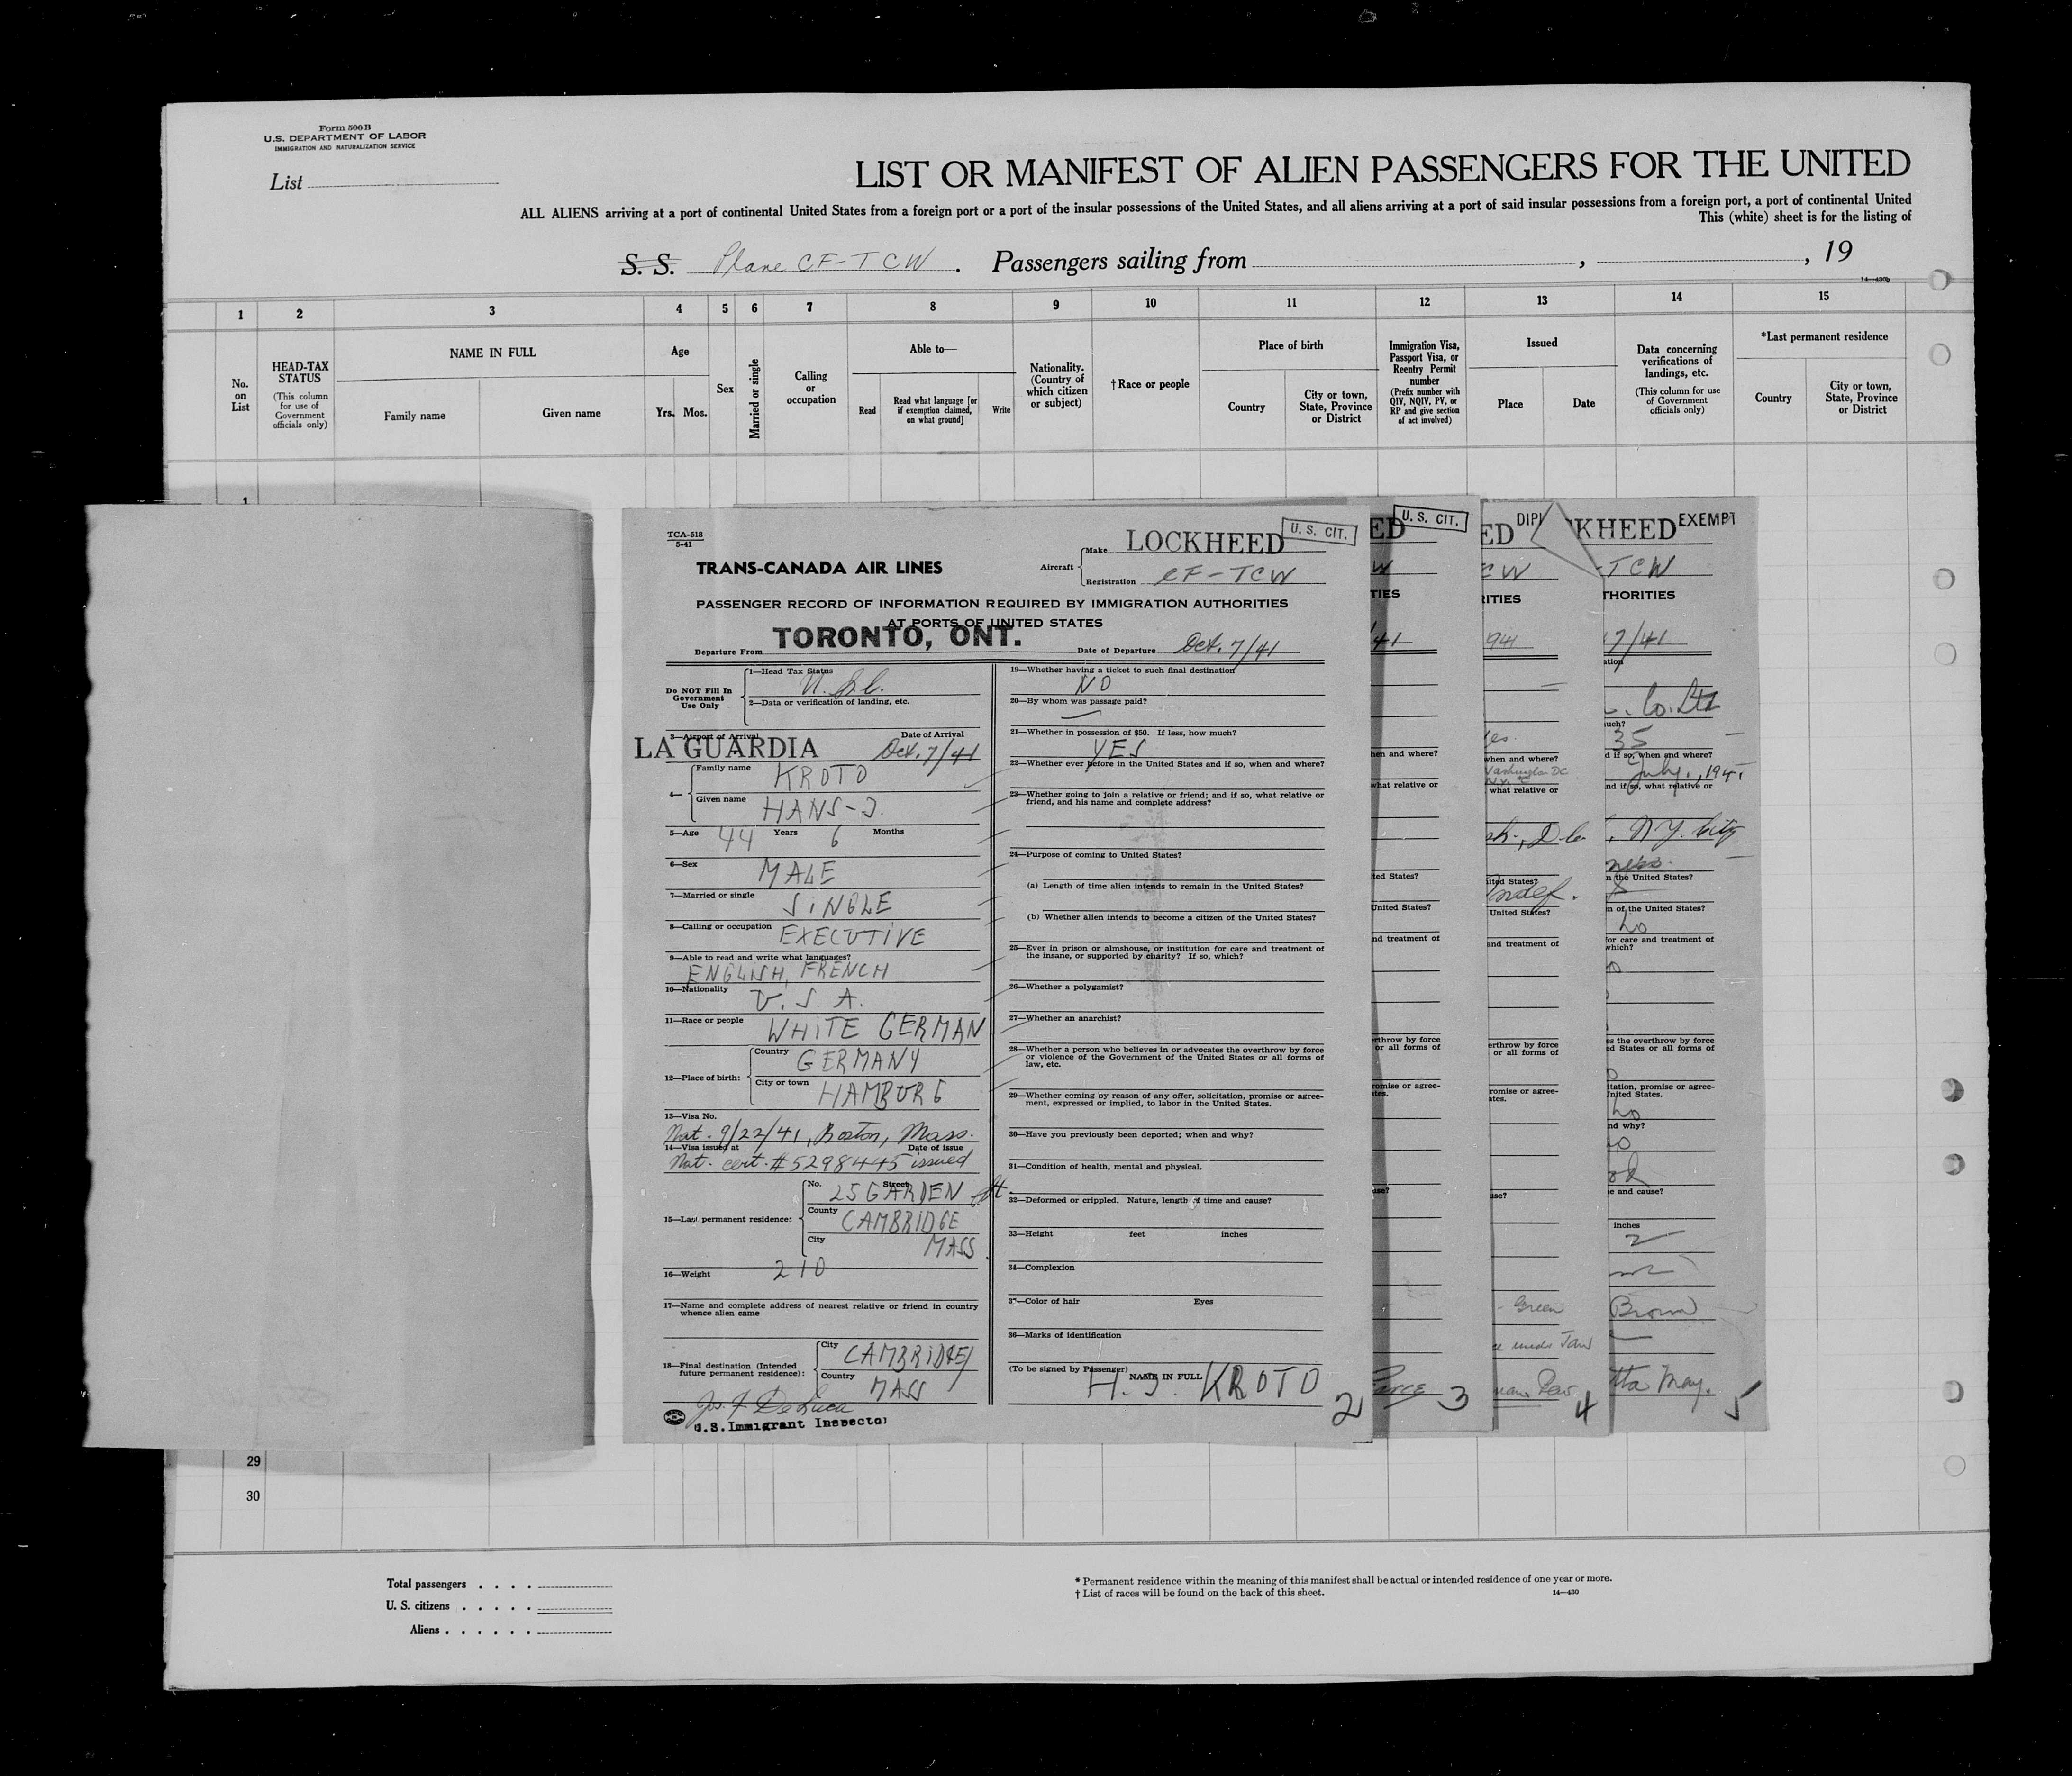 Form 500 B
U.S. DEPARTMENT OF LABOR
IMMIGRATION AND NATURALIZATION SERVICE
List
LIST OR MANIFEST OF ALIEN PASSENGERS FOR THE UNITED
ALL ALIENS arriving at a port of continental United States from a foreign port or a port of the insular possessions of the United States, and all aliens arriving at a port of said insular possessions from a foreign port, a port of continental United
This (white) sheet is for the listing of
S. S. Plane CF-TCW. Passengers sailing from , , 19
14—430b
1 2 3 4 5 6 7 8 9 10 11 12 13 14 15
No. on List
HEAD-TAX STATUS (This column for use of Government officials only)
NAME IN FULL
Family name Given name
Age
Yrs. Mos.
Sex
Married or single
Calling or occupation
Able to—
Read
Read what language [or if exemption claimed, on what ground]
Write
Nationality. (Country of which citizen or subject)
†Race or people
Place of birth
Country
City or town, State, Province or District
Immigration Visa, Passport Visa, or Reentry Permit number (Prefix number with QIV, NQIV, PV, or RP and give section of act involved)
Issued
Place Date
Data concerning verifications of landings, etc. (This column for use of Government officials only)
*Last permanent residence
Country
City or town, State, Province or District
1
TCA-518
5-41
TRANS-CANADA AIR LINES
Aircraft
Make LOCKHEED
U. S. CIT.
Registration CF-TCW
PASSENGER RECORD OF INFORMATION REQUIRED BY IMMIGRATION AUTHORITIES
AT PORTS OF UNITED STATES
Departure From TORONTO, ONT. Date of Departure Oct. 7/41
Do NOT Fill In Government Use Only
1—Head Tax Status
2—Data or verification of landing, etc.
3—Airport of Arrival Date of Arrival
LA GUARDIA Oct. 7/41
4—
Family name KROTO
Given name HANS-J.
5—Age 44 Years 6 Months
6—Sex MALE
7—Married or single SINGLE
8—Calling or occupation EXECUTIVE
9—Able to read and write what languages?
ENGLISH, FRENCH
10—Nationality U. S. A.
11—Race or people WHITE GERMAN
12—Place of birth:
Country GERMANY
City or town HAMBURG
13—Visa No.
Nat. 9/22/41, Boston, Mass.
14—Visa issued at Date of issue
Nat. cert. #5298445 issued
15—Last permanent residence:
No. Street 25 GARDEN St.
County CAMBRIDGE
City MASS.
16—Weight 210
17—Name and complete address of nearest relative or friend in country whence alien came
18—Final destination (Intended future permanent residence):
City CAMBRIDGE
Country MASS
Jos. F. DeLuca
U.S. Immigrant Inspector
19—Whether having a ticket to such final destination
NO
20—By whom was passage paid?
21—Whether in possession of $50. If less, how much?
YES
22—Whether ever before in the United States and if so, when and where?
23—Whether going to join a relative or friend; and if so, what relative or friend, and his name and complete address?
24—Purpose of coming to United States?
(a) Length of time alien intends to remain in the United States?
(b) Whether alien intends to become a citizen of the United States?
25—Ever in prison or almshouse, or institution for care and treatment of the insane, or supported by charity? If so, which?
26—Whether a polygamist?
27—Whether an anarchist?
28—Whether a person who believes in or advocates the overthrow by force or violence of the Government of the United States or all forms of law, etc.
29—Whether coming by reason of any offer, solicitation, promise or agreement, expressed or implied, to labor in the United States.
30—Have you previously been deported; when and why?
31—Condition of health, mental and physical.
32—Deformed or crippled. Nature, length of time and cause?
33—Height feet inches
34—Complexion
35—Color of hair Eyes
36—Marks of identification
(To be signed by Passenger)
NAME IN FULL
H. J. KROTO
2
ED
U. S. CIT.
W
TIES
/41
hen and where?
what relative or
ted States?
United States?
nd treatment of
erthrow by force
or all forms of
romise or agree-
tes.
use?
3
ED DIPL
CW
RITIES
941
Yes.
when and where?
Washington DC
what relative or
sh., D.C.
ited States?
Indef.
United States?
and treatment of
erthrow by force
or all forms of
romise or agree-
tes.
use?
Green
4
KHEED EXEMPT
-TCW
THORITIES
7/41
ation
. Co. Ltd
uch?
35
d if so, when and where?
July, 1941
nd if so, what relative or
, N.Y. City
ness.
n the United States?
n of the United States?
no
for care and treatment of
which?
es the overthrow by force
ed States or all forms of
itation, promise or agree-
United States.
no
nd why?
no
e and cause?
inches
2
Brown
tta May.
5
29
30
Total passengers . . . .
U. S. citizens . . . . .
Aliens . . . . . .
* Permanent residence within the meaning of this manifest shall be actual or intended residence of one year or more.
† List of races will be found on the back of this sheet. 14—430